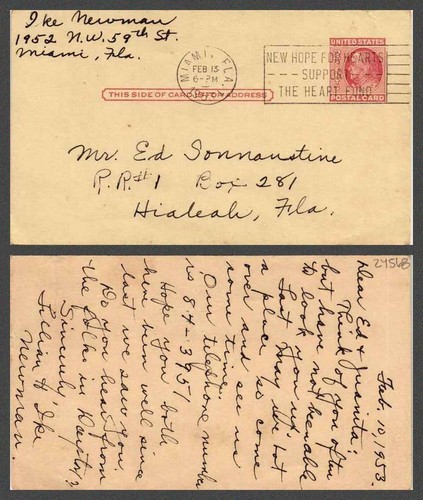 Ike Newman
1952 N.W. 59th St.
Miami, Fla.
MIAMI, FLA.
FEB 13
6-PM
NEW HOPE FOR HEARTS
SUPPORT
THE HEART FUND
UNITED STATES
POSTAL CARD
THIS SIDE OF CARD IS FOR ADDRESS
Mr. Ed Sonnanstine
R.R.#1 Box 281
Hialeah, Fla.
24568
Feb. 10, 1953.
Dear Ed & Juanita:
Think of you often
but have not been able
to look you up.
Last May we bot
a place so come
over and see us
some time.
Our telephone number
is 84-3951
Hope you both
have been well since
last we saw you.
Do you hear from
the in
Sincerely
Lillian & Ike
Newman.